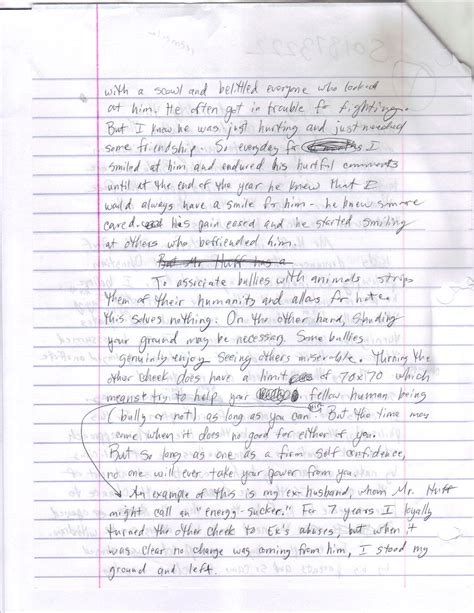 with a scowl and belittled everyone who looked
at him. He often got in trouble for fighting.
But I knew he was just hurting and just needed
some friendship. So everyday for months I
smiled at him and endured his hurtful comments
until at the end of the year he knew that I
would always have a smile for him - he knew someone
cared. His pain eased and he started smiling
at others who befriended him.
But Mr. Huff has a
To assiciate bullies with animals strips
them of their humanity and allows for hate.
This solves nothing. On the other hand, standing
your ground may be necessary. Some bullies
genuinely enjoy seeing others miserable. Turning the
other cheek does have a limit of 70x70 which
means try to help your fellow human being
(bully or not) as long as you can. But the time may
come when it does no good for either of you.
But so long as one as a firm self confidence,
no one will ever take your power from you.
An example of this is my ex-husband, whom Mr. Huff
might call an "energy-sucker." For 7 years I loyally
turned the other cheek to Ex's abuses, but when it
was clear no change was coming from him, I stood my
ground and left.